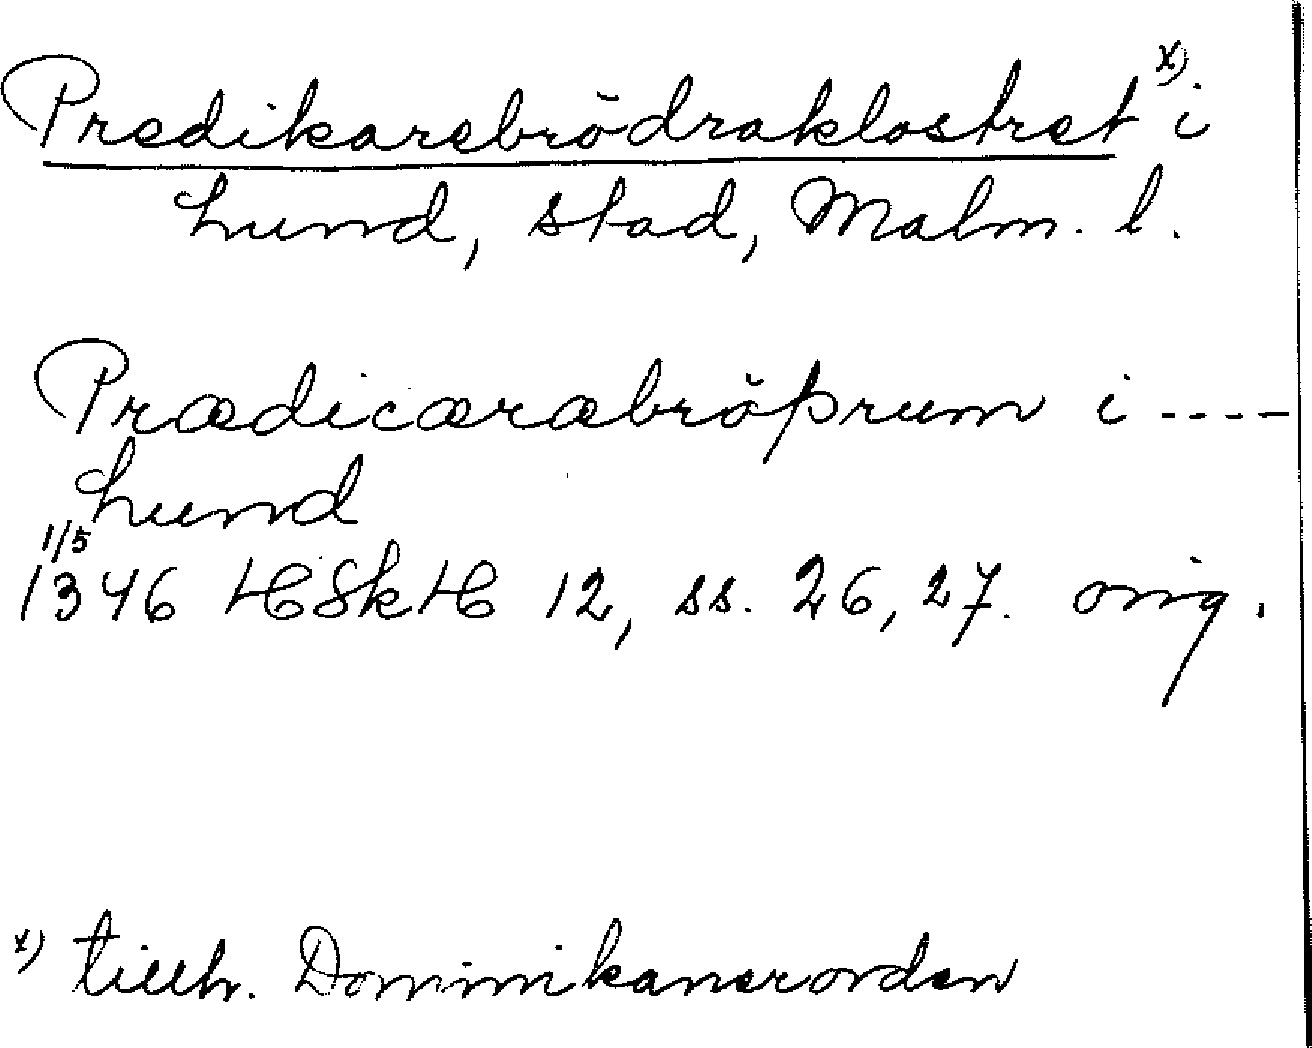 Predikarebrödraklostret x) i
Lund, stad, Malm. l.
Prædicæræbröþrum i ----
Lund
1/5
1346 HSkH 12, ss. 26, 27. orig.
x) tillh. Dominikanerorden